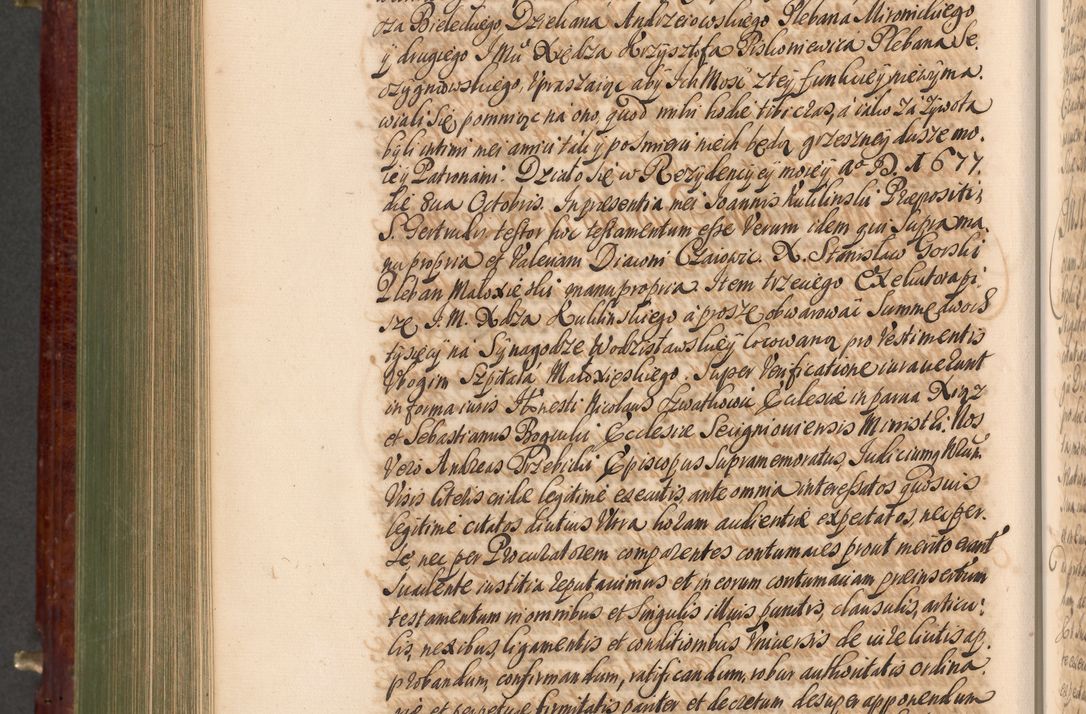 dza Bieleckiego, Dziekana Andrzeiowskiego Plebana Mironickiego
y drugiego Jmci Xiędza Krzysztofa Piskoniewicza Plebana Se:
czygniowskiego, Upraszaiąc aby Ich Mość z tey funkcyey niewyma:
wiali się pomniąc na ono, quod mihi hodie tibi cras, a iako za żywota
byli intimi mei amici tak y po śmierci niech będą grzeszney duszę mo:
iey Patronami. Działo się w Rezydencyey moiey Ao D. 1677.
die 8va Octobris. In præsentia mei Joannis Kulilinski Præpositi
S. Gertrudis testor hoc testamentum esse Verum idem qui Supra ma:
nu propria et Valeriani Diaconi X. Stanisław Gorski
Pleban Małoxięski manu propria. Item trzeciego Exekutora pi
szę J. M. Xdza Kulilinskiego a proszę obwarować Summę dwoch
tysięcy na Synagodze Wodzisławskiey locowaną pro Vestimentis
Ubogim Szpitala Małoxięskiego. Super Verificatione iuraverunt
in forma iuris Honesti Nicolaus Ecclesiæ in parva Xiąz
et Sebastianus Ecclesiæ Secigniouiensis Ministri. Nos
Vero Andreas Trzebicki Episcopus Supramemoratus, Judicium
Visis literis eidē legitimè executis, ante omnia interessatos quosuis
legitime citatos diutius Ultra horam audientiæ expectatos, nec per
se, nec per Procuratorem comparentes contumaces prout merito erant
Suadente iustitia reputauimus et in eorum contumaciam præinsertum
testamentum in omnibus et singulis illius punctis, clausulis, articu:
lis, nexibus ligamentis et conditionibus Vniuersis de iure licitis ap:
probandum, confirmandum, ratificandum, robur authoritatis ordina:
riæ et perpetuæ firmitatis pariter et decretum desuper apponendum